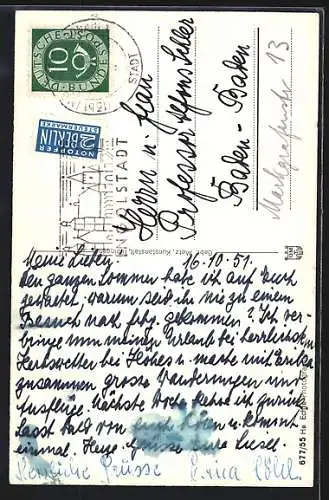 DEUTSCHE BUNDESPOST
10
NOTOPFER
2 BERLIN
STEUERMARKE
STADT
Herrn u. Frau
Professor Alfons
Baden-Baden
Markgrafenstr 13
Gebr. Metz, Kunstanstalt,
Meine Lieben! 16.10.51.
Den ganzen Sommer habe ich auf Euch
gewartet, warum seid ihr nie zu einem
Besuch nach gekommen? Ich ver-
bringe nun meinen Urlaub bei herrlichstem
Herbstwetter bei u. mache mit Erika
zusammen grosse Wanderungen und
Ausflüge. Nächste Woche kehre ich zurück
Lasst bald von Euch hören u. kommt
einmal. Herzl. Grüsse Eure Liesel.
Herzliche Grüsse Erica
677/55 He